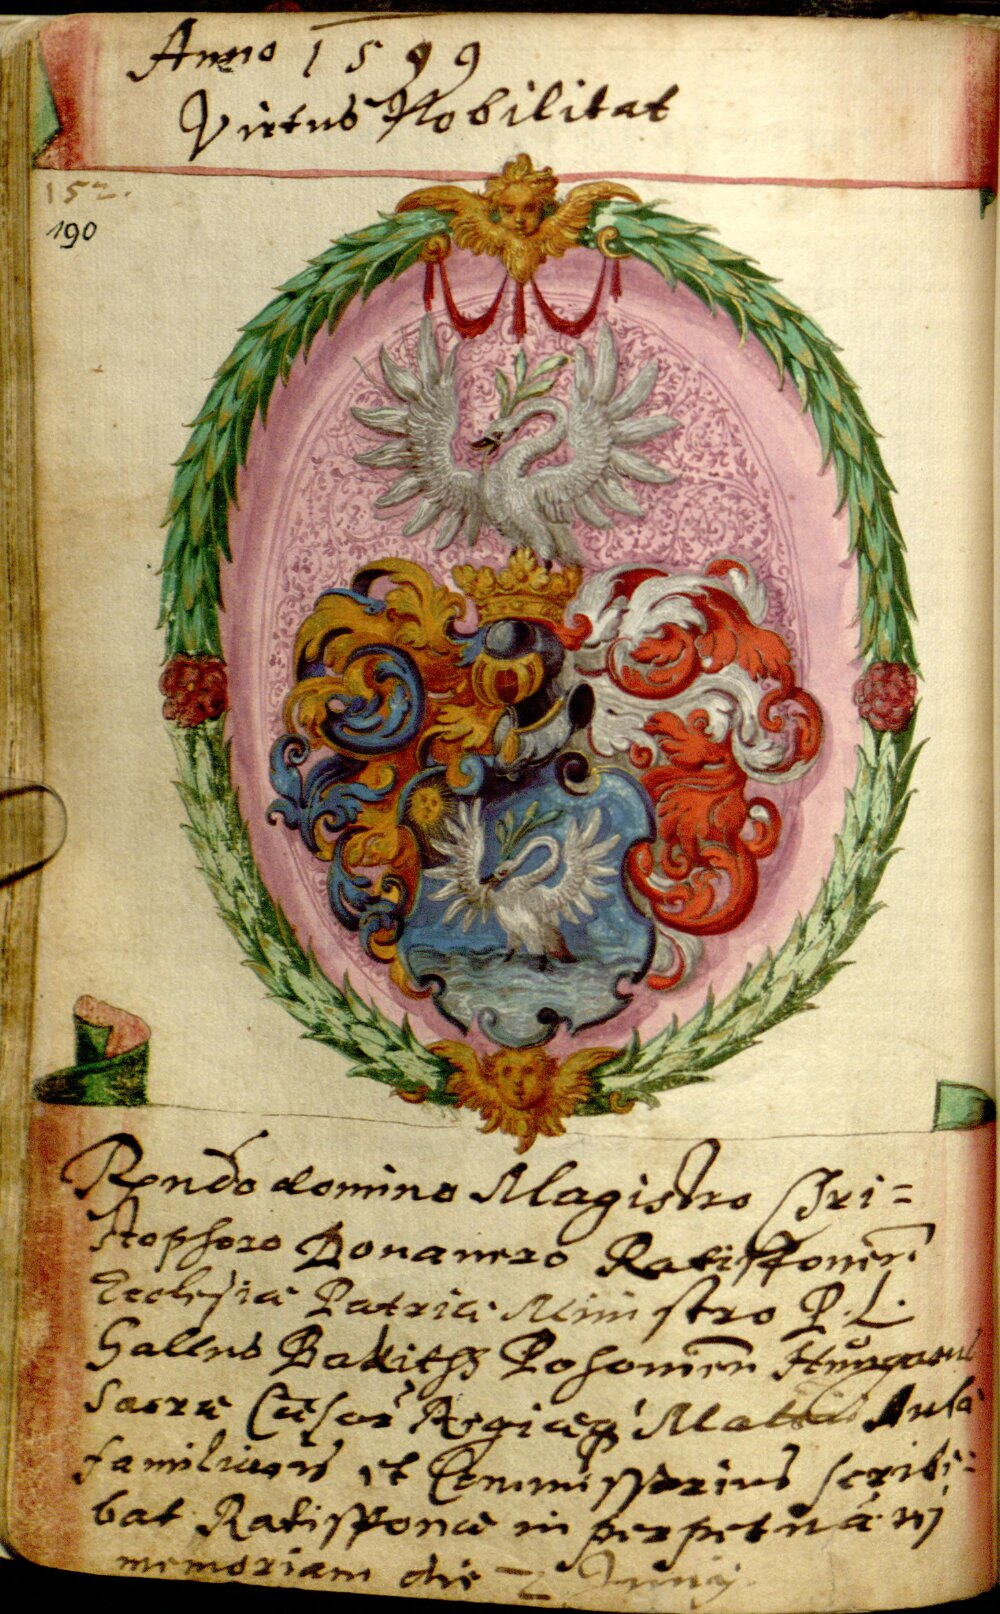 Anno 1599
Virtus Nobilitat
152.
190
Rendo domino Magistro Chri=
stophoro Donauero Ratisponen:
Ecclesiæ Patriæ Ministro P. L.
Gallus Bakitsh Posonien Hungarus
Sacræ Cæsar Regiæq Aulæ
familiaris et Commissarius scribe=
bat Ratisponæ in perpetuā
memoriam die 2 Junij.